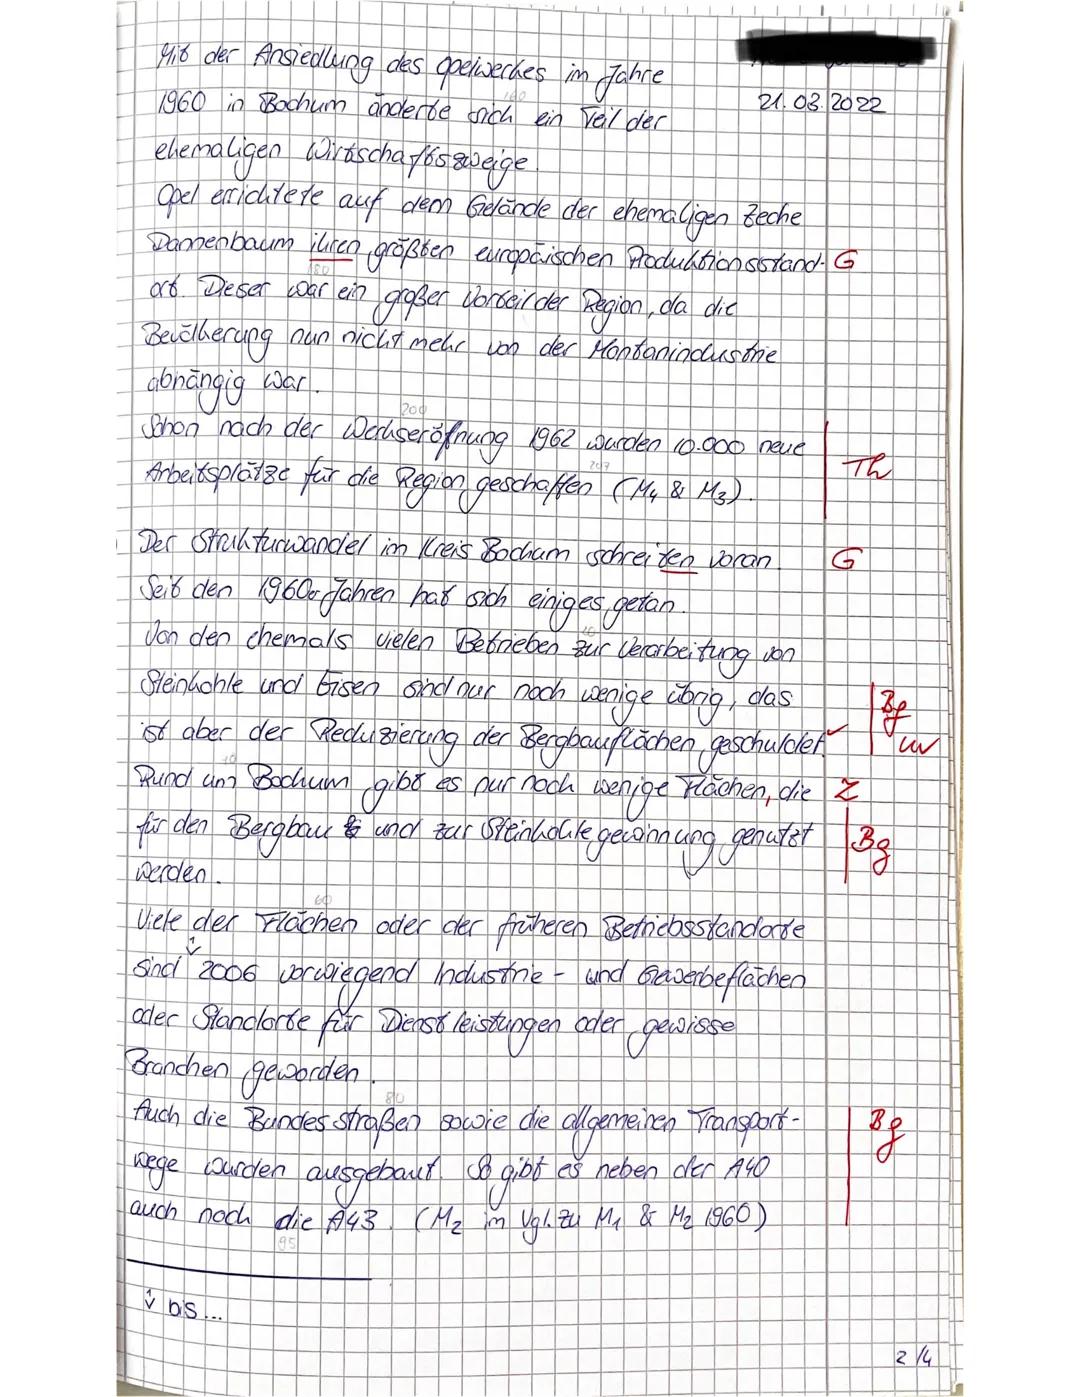 Mit der Ansiedlung des Opelwerkes im Jahre
21.03.2022
160
1960 in Bochum änderte sich ein Teil der
ehemaligen Wirtschaftszweige.
Opel errichtete auf dem Gelände der ehemaligen Zeche
Dannenbaum ihren größten europäischen Produktionsstand- G
180
ort. Dieser war ein großer Vorteil der Region, da die
Bevölkerung nun nicht mehr von der Montanindustrie
abhängig war.
200
Schon nach der Werkseröffnung 1962 wurden 10.000 neue
Th
207
Arbeitsplätze für die Region geschaffen (M4 & M3).
Der Strukturwandel im Kreis Bochum schreiten voran. G
Seit den 1960er Jahren hat sich einiges getan.
Von den ehemals vielen Betrieben zur Verarbeitung von
Steinkohle und Eisen sind nur noch wenige übrig, das
Bg
ist aber der Reduzierung der Bergbauflächen geschuldet. ✓
Rund um Bochum gibt es nur noch wenige Flächen, die Z
für den Bergbau und zur Steinkohlegewinnung genutzt Bg
werden.
60
Viele der Flächen oder der früheren Betriebsstandorte
sind 2006 vorwiegend Industrie- und Gewerbeflächen
oder Standorte für Dienstleistungen oder gewisse
Branchen geworden.
80
Auch die Bundesstraßen sowie die allgemeinen Transport- Bg
wege wurden ausgebaut. So gibt es neben der A40
auch noch die A43. (M2 im Vgl. zu M1 & M2 1960)
95
bis...
2/4